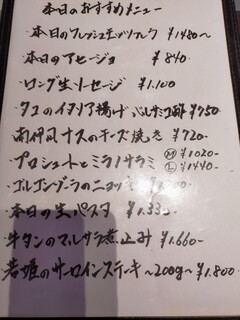 本日のおすすめメニュー
・本日のフレッシュモッツァレラ ¥1480〜
・本日のアヒージョ ¥840
・ロング生ソーセージ ¥1.100
・タコのイタリア揚げバルサミコ酢 ¥750
・南伊同ナスのチーズ焼き ¥720-
・プロシュートとミラノサラミ Ⓜ¥1020-
Ⓛ¥1440-
・ゴルゴンゾーラのニョッキ
・本日の生パスタ ¥1.33
・牛タンのマルサラ煮込み ¥1.660-
・若姫のサーロインステーキ〜200g〜 ¥1.800